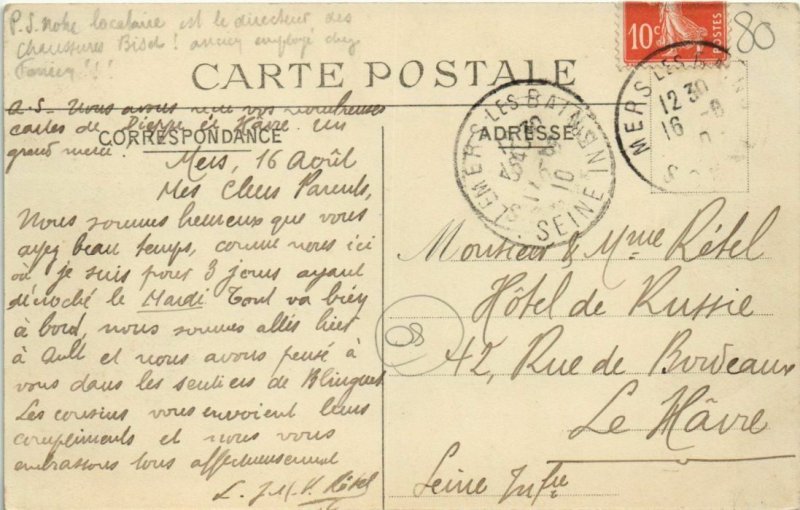 P.S. notre locataire est le directeur des
chaussures Bisch ! ancien employé chez
!!!
CARTE POSTALE
A.S. Nous avons reçu vos nombreuses
cartes de Dieppe et Hâvre. Un
grand merci.
CORRESPONDANCE
Mers, 16 Août
Mes Chers Parents,
Nous sommes heureux que vous
ayez beau temps, comme nous ici
où je suis pour 3 jours ayant
décroché le Mardi Tout va bien
à bord, nous sommes allés hier
à Ault et nous avons pensé à
vous dans les sentiers de
Les cousins vous envoient leurs
compliments et nous vous
embrassons tous affectueusement
L. J. M. H. Rétel
ADRESSE
10c
POSTES
80
MERS-LES-BAINS
12 30
16 -8
LES BAINS
SEINE INF
10
Monsieur & Mme Rétel
Hôtel de Russie
80
42, Rue de Bordeaux
Le Hâvre
Seine Infre